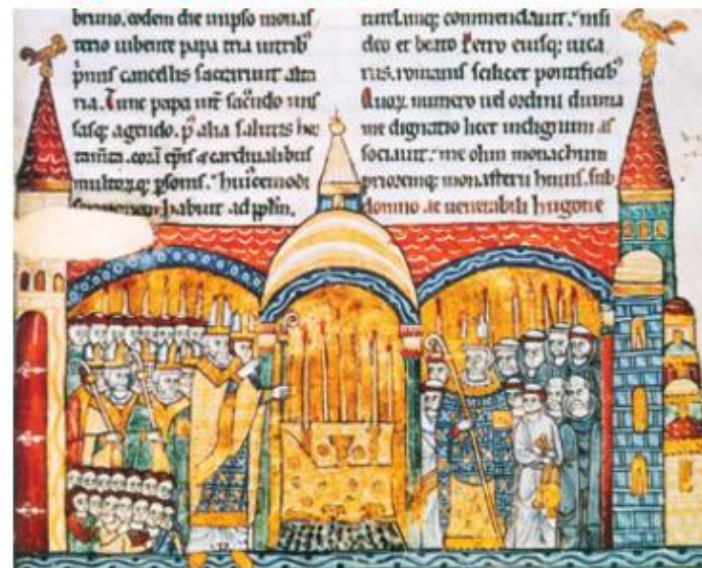 bruno. eodem die in ipso monas
terio iubente papa tria in trib'
primis cancellis sacrarunt alta
ria. Tunc papa int̄ sac̄ndo mis
sasq; agendo. p' alia salutis hor
tam̄ta. corā ep̄is & cardinalibus
multorūq; p̄sonis. huiuscemodi
habuit ad pplm.
tutelamq; commendauit. nisi
deo et beato Petro eiusq; uica
riis. romanis scilicet pontificib'
Quoꝝ numero uel ordini diuina
me dignatio licet indignum as
sociauit. me olim monachum
prioremq; monasterii huius. sub
domno ac uenerabili hugone